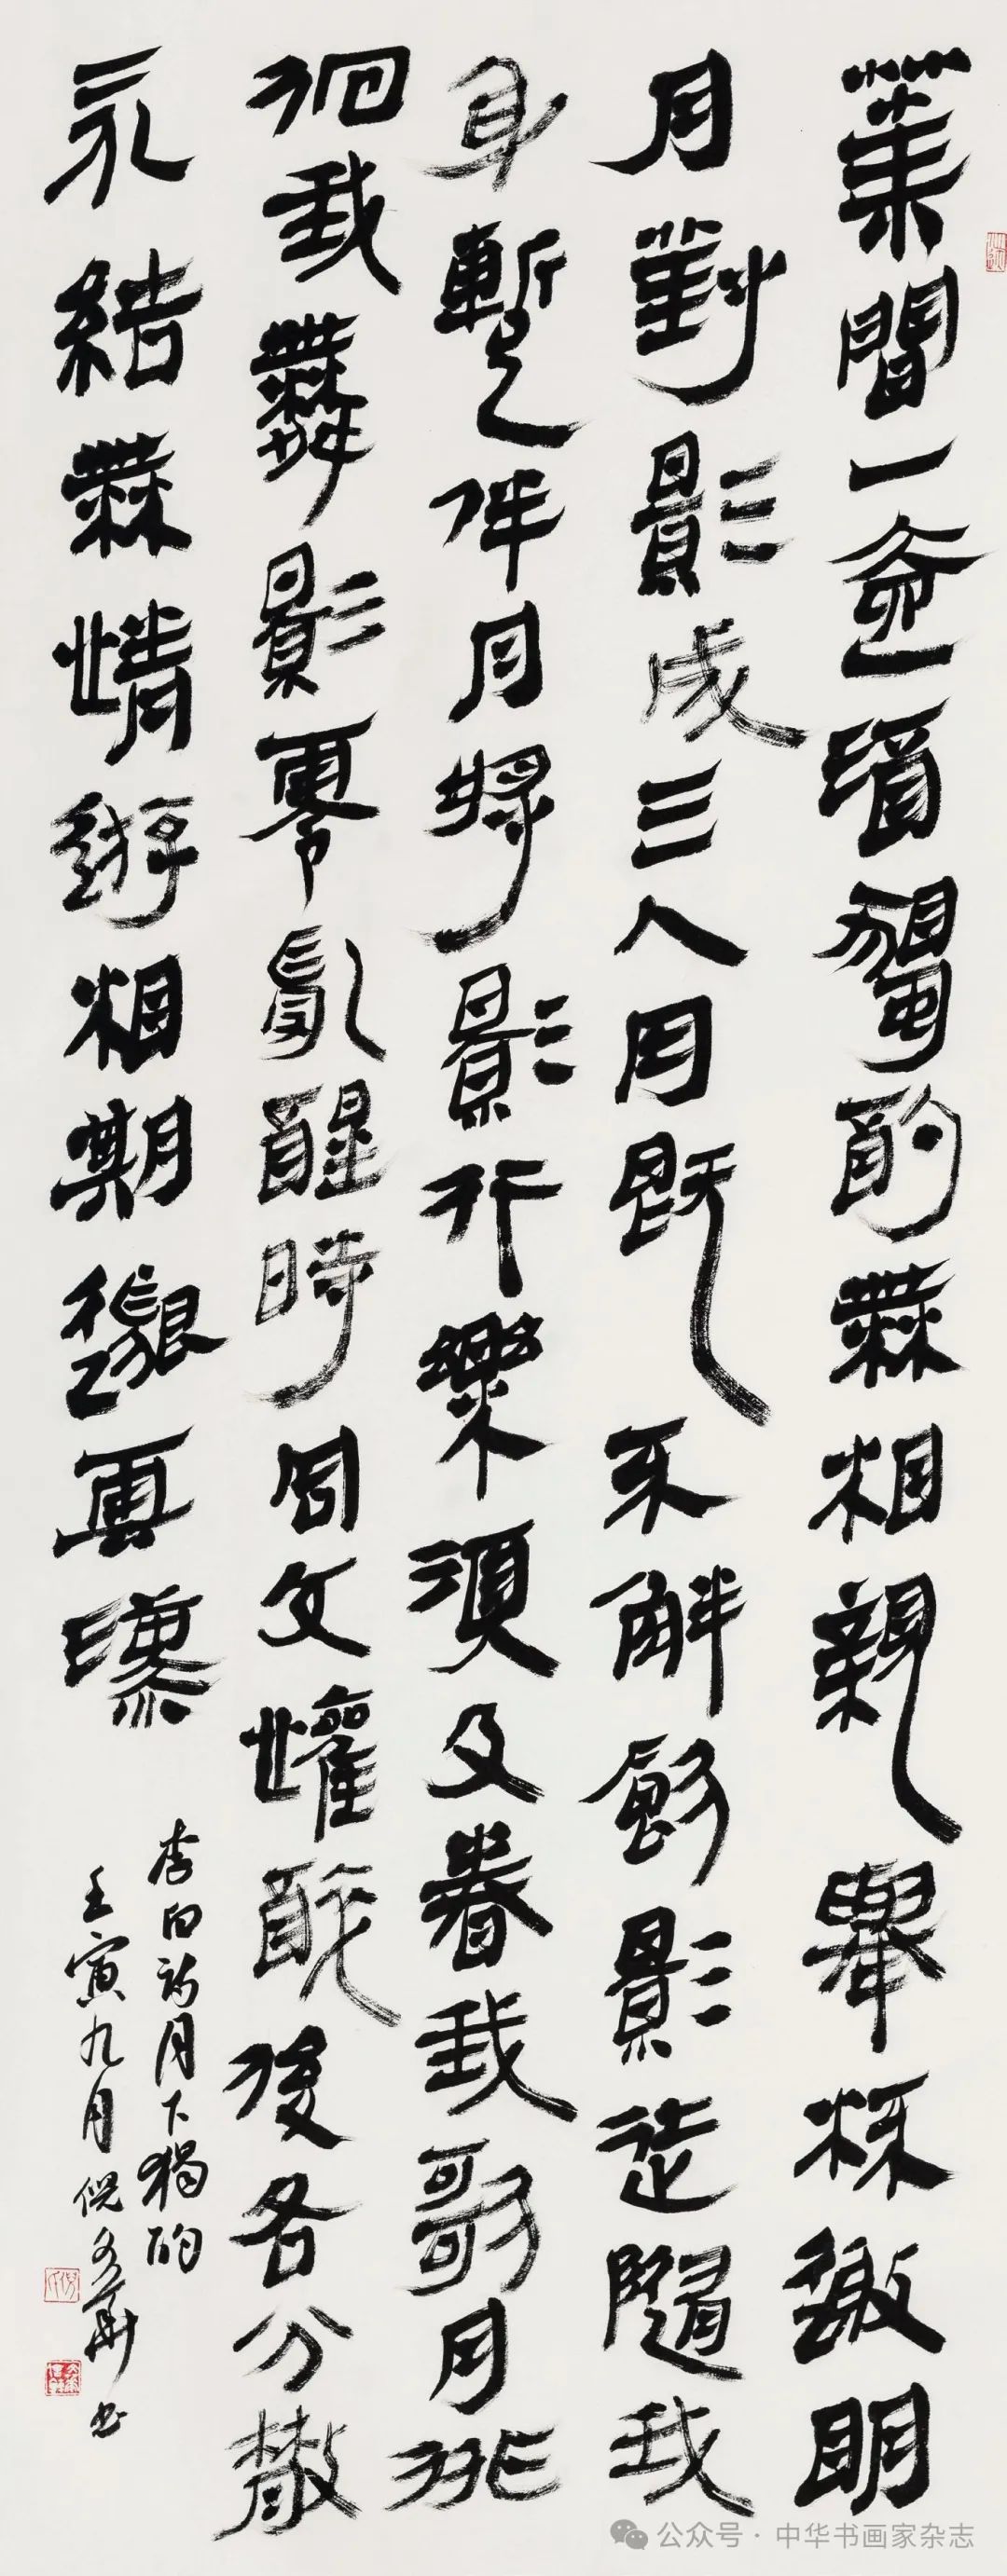 華間一壺酒獨酌無相親舉杯邀明
月對影成三人月既不解飲影徒隨我
身暫伴月將影行樂須及春我歌月徘
徊我舞影零亂醒時同交歡醉後各分散
永結無情遊相期邈雲漢
李白詩月下獨酌
壬寅九月倪文華书
公众号·中华书画家杂志